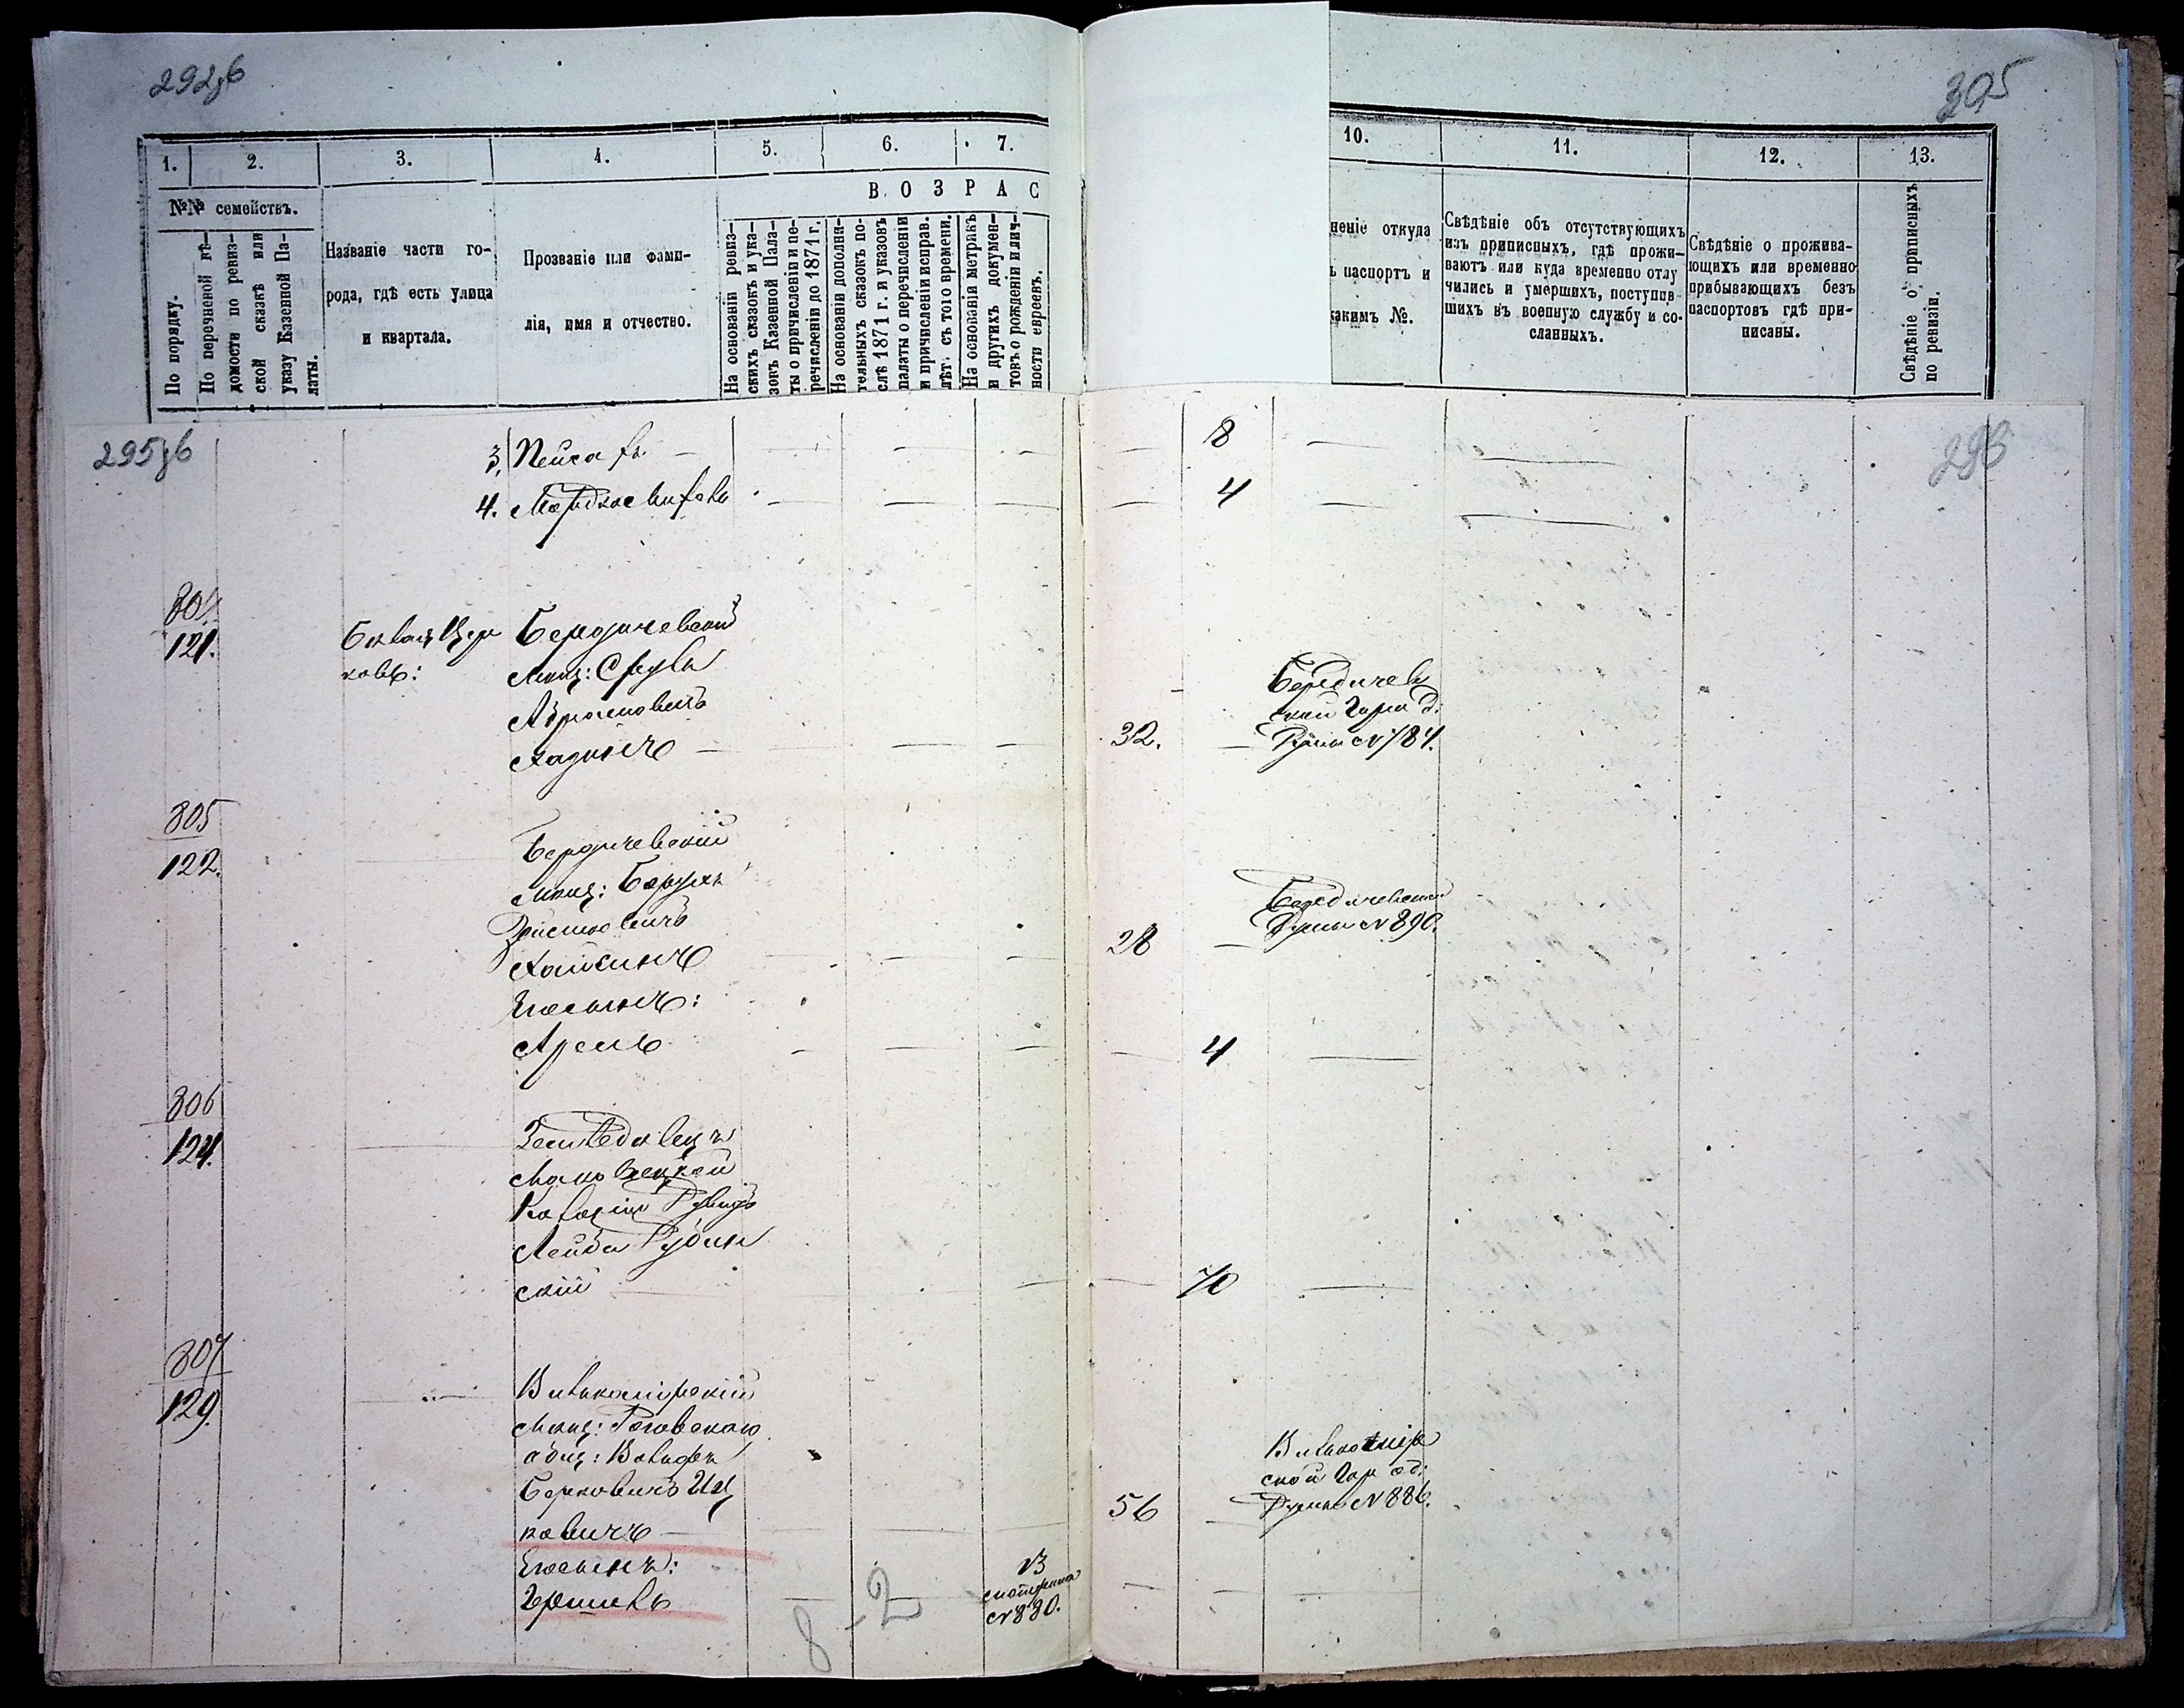 292об
305
1.
2.
3.
4.
5.
6.
7.
10.
11.
12.
13.
ВОЗРАС
№№ семействъ.
По порядку.
По перечневой вѣ-
домости по ревиз-
ской сказкѣ или
указу Казенной Па-
латы.
Названіе части го-
рода, гдѣ есть улица
и квартала.
Прозваніе или фами-
лія, имя и отчество.
На основаніи ревиз-
скихъ сказокъ и ука-
зовъ Казенной Пала-
ты о причисленіи и пе-
речисленіи до 1871 г.
На основаніи дополни-
тельныхъ сказокъ по-
слѣ 1871 г. и указовъ
палаты о перечисленіи
и причисленіи исправ.
лѣт. съ того времени.
На основаніи метрикъ
и другихъ докумен-
товъ о рожденіи и лич-
ности евреевъ.
неніе откуда
ъ паспортъ и
какимъ №.
Свѣдѣніе объ отсутствующихъ
изъ приписныхъ, гдѣ прожи-
ваютъ или куда временно отлу
чились и умершихъ, поступив-
шихъ въ военную службу и со-
сланныхъ.
Свѣдѣніе о прожива-
ющихъ или временно
прибывающихъ безъ
паспортовъ гдѣ при-
писаны.
Свѣдѣніе о приписныхъ
по ревизіи.
295об
296
3. Пейсахъ — 8
4. 4
304
121.
Бѣлая Цер
ковь:
Бердичевскій
Мѣщ: Сруль
Абрамовичъ
32.
Бердичев
ской Город:
Думы №784.
305
122.
Бердичевскій
Мѣщ: Борухъ
28
Бердичевской
Думы №890.
Его сынъ:
Аронъ 4
306
124.
Лейба Рубин
скій 70
307
129.
Вилькомірскій
Мѣщ: Роговскаго
общ: Вольфъ
Берковичъ Иц
ковичъ — 56
Вилькомір
ской Город:
Думы №886.
Его сынъ:
Гершель
8-2
№880.